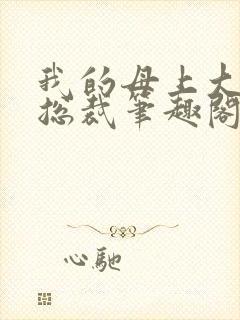 我的母上大
总裁笔趣阁
心驰